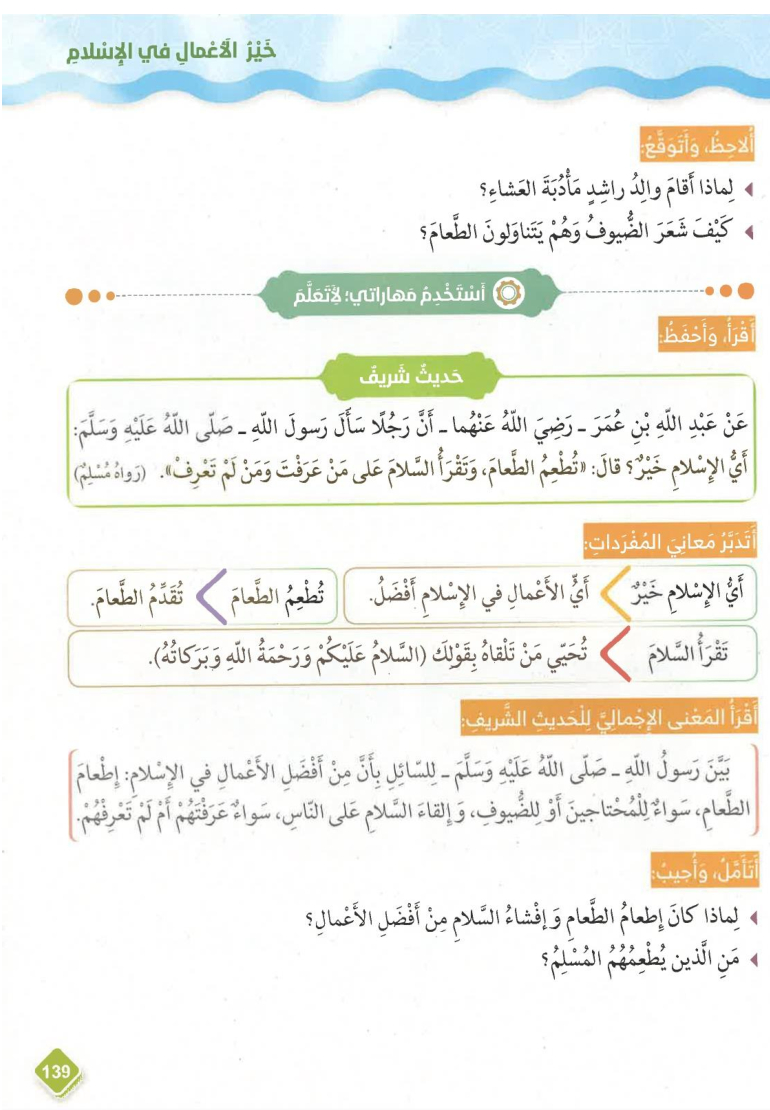 خَيْرُ الْأَعْمالِ في الإِسْلامِ
أُلاحِظُ، وَأَتَوَقَّعُ:
لِماذا أَقامَ والِدُ راشِدٍ مَأْدُبَةَ العَشاءِ؟
كَيْفَ شَعَرَ الضُّيوفُ وَهُمْ يَتَناوَلونَ الطَّعامَ؟
أَسْتَخْدِمُ مَهاراتي؛ لِأَتَعَلَّمَ
أَقْرَأُ، وَأَحْفَظُ:
حَديثٌ شَريفٌ
عَنْ عَبْدِ اللّهِ بْنِ عُمَرَ ـ رَضِيَ اللّهُ عَنْهُما ـ أَنَّ رَجُلًا سَأَلَ رَسولَ اللّهِ ـ صَلّى اللّهُ عَلَيْهِ وَسَلَّمَ:
أَيُّ الإِسْلامِ خَيْرٌ؟ قالَ: «تُطْعِمُ الطَّعامَ، وَتَقْرَأُ السَّلامَ عَلى مَنْ عَرَفْتَ وَمَنْ لَمْ تَعْرِفْ». (رَواهُ مُسْلِمٌ)
أَتَدَبَّرُ مَعانِيَ المُفْرَداتِ:
أَيُّ الإِسْلامِ خَيْرٌ أَيُّ الأَعْمالِ في الإِسْلامِ أَفْضَلُ. تُطْعِمُ الطَّعامَ تُقَدِّمُ الطَّعامَ.
تَقْرَأُ السَّلامَ تُحَيّي مَنْ تَلْقاهُ بِقَوْلِكَ (السَّلامُ عَلَيْكُمْ وَرَحْمَةُ اللّهِ وَبَرَكاتُهُ).
أَقْرَأُ المَعْنى الإِجْمالِيَّ لِلْحَديثِ الشَّريفِ:
بَيَّنَ رَسولُ اللّهِ ـ صَلّى اللّهُ عَلَيْهِ وَسَلَّمَ ـ لِلسّائِلِ بِأَنَّ مِنْ أَفْضَلِ الأَعْمالِ في الإِسْلامِ: إِطْعامَ
الطَّعامِ، سَواءٌ لِلْمُحْتاجينَ أَوْ لِلضُّيوفِ، وَإِلقاءَ السَّلامِ عَلى النّاسِ، سَواءٌ عَرَفْتَهُمْ أَمْ لَمْ تَعْرِفْهُمْ.
أَتَأَمَّلُ، وَأُجيبُ:
لِماذا كانَ إِطعامُ الطَّعامِ وَإفْشاءُ السَّلامِ مِنْ أَفْضَلِ الأَعْمالِ؟
مَنِ الَّذين يُطْعِمُهُمُ المُسْلِمُ؟
139